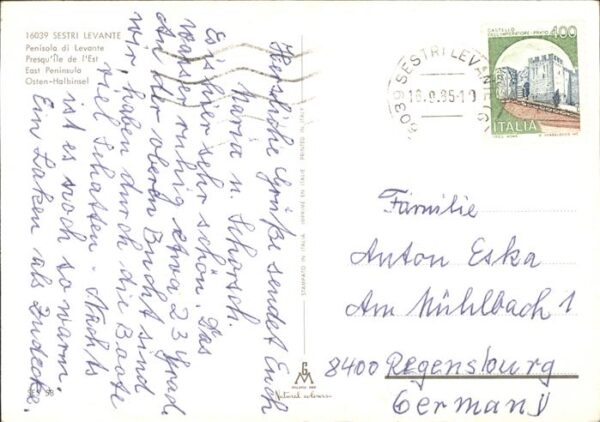 16039 SESTRI LEVANTE
Penisola di Levante
Presqu'île de l'Est
East Peninsula
Osten-Halbinsel
Herzliche Grüße sendet Euch
Maria u. Schorsch.
Es ist hier sehr schön. Das
Wasser ruhig etwa 23 Grad.
An der oberen Bucht sind
wir, haben durch die Boote
viel Schatten. Nachts
ist es noch so warm.
Ein Laken als Zudecke.
STAMPATO IN ITALIA
PRINTED IN ITALY
16039 SESTRI LEVANTE (G
18.9.85-19
CASTELLO
DELL'IMPERATORE · PRATO
400
ITALIA
Familie
Anton Eska
Am Mühlbach 1
8400 Regensburg
Germany